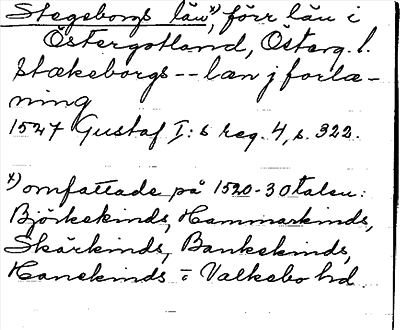 Stegeborgs län,x) förr län i
Östergötland, Österg. l.
Stækeborgs -- læn j forlæ-
ning
1527 Gustaf I:s reg. 4, s. 322.
x) omfattade på 1520-30talen:
Björkekinds, Hammarkinds,
Skärkinds, Bankekinds,
Hanekinds o. Valkebo hd.